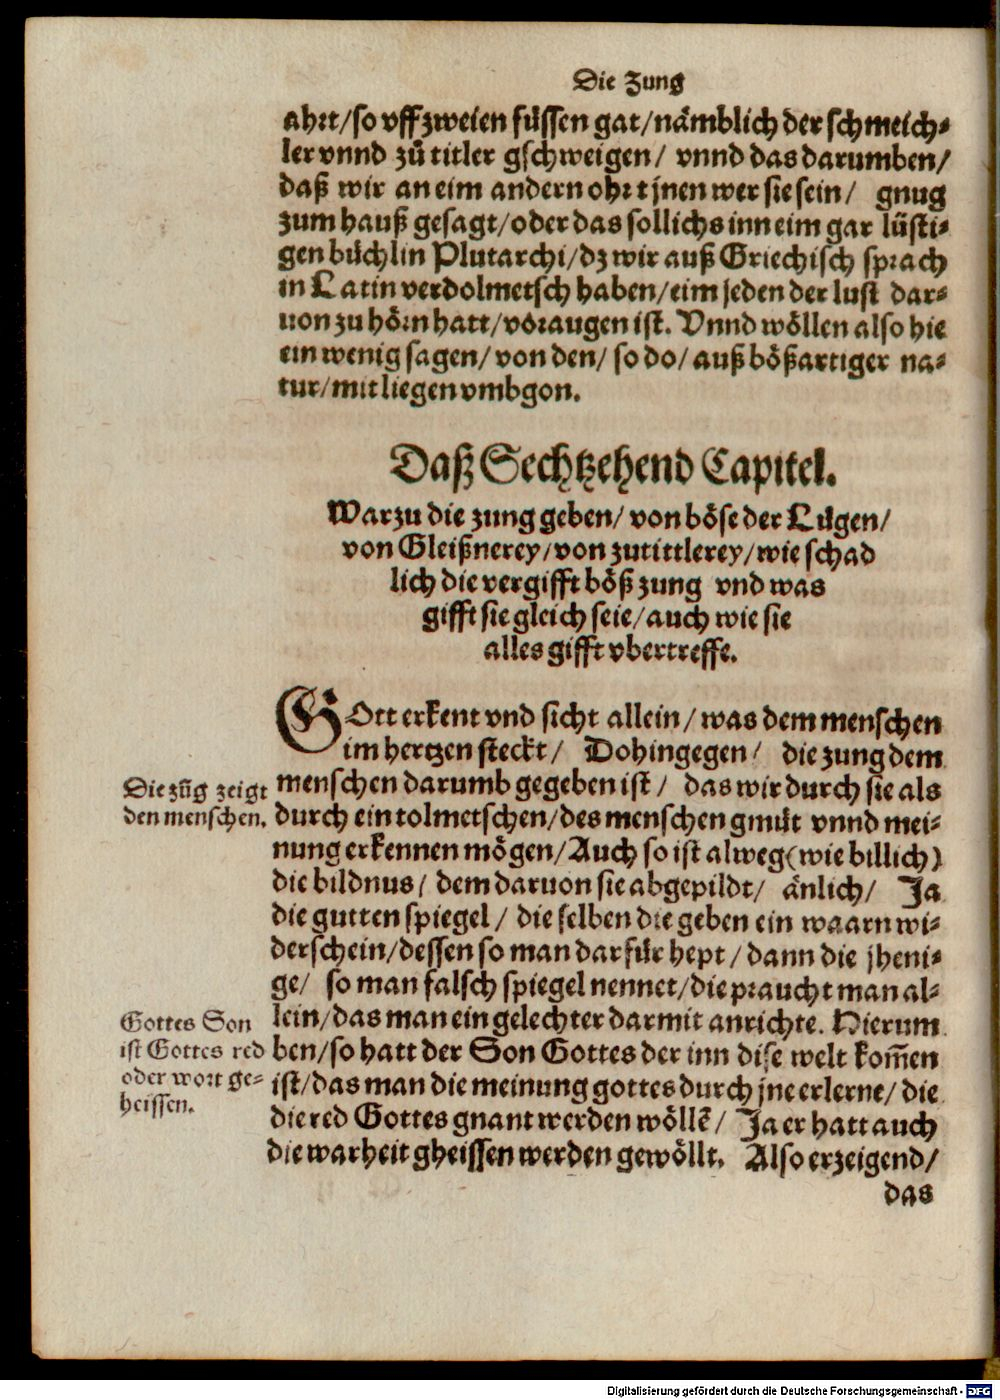 Die Zung
ahrt/so vff zweien füssen gat/nämblich der schmeich-
ler vnnd zů titler gschweigen/ vnnd das darumben/
daß wir an eim andern ohrt jnen wer sie sein/ gnug
zum hauß gesagt/oder das sollichs inn eim gar lüsti-
gen büchlin Plutarchi/dz wir auß Griechisch sprach
in Latin verdolmetsch haben/eim jeden der lust dar-
uon zu hörn hatt/vor augen ist. Vnnd wöllen also hie
ein wenig sagen/ von den/ so do/ auß bößartiger na-
tur/mit liegen vmbgon.
Daß Sechtzehend Capitel.
Warzu die zung geben/ von böse der Lügen/
von Gleißnerey/von zutittlerey/wie schad
lich die vergifft böß zung vnd was
gifft sie gleich seie/auch wie sie
alles gifft vbertreffe.
GOtt erkent vnd sicht allein/was dem menschen
im hertzen steckt/ Dohingegen/ die zung dem
menschen darumb gegeben ist/ das wir durch sie als
durch ein tolmetschen/des menschen gmüt vnnd mei-
nung erkennen mögen/Auch so ist alweg(wie billich)
die bildnus/ dem daruon sie abgepildt/ änlich/ Ja
die gutten spiegel/ die selben die geben ein waarn wi-
derschein/dessen so man darfür hept/dann die jheni-
ge/ so man falsch spiegel nennet/die praucht man al-
lein/das man ein gelechter darmit anrichte. Hierum
ben/so hatt der Son Gottes der inn dise welt kom̄en
ist/das man die meinung gottes durch jne erlerne/die
die red Gottes gnant werden wöllē/ Ja er hatt auch
die warheit gheissen werden gewöllt. Also erzeigend/
das
Die zūg zeigt
den menschen.
Gottes Son
ist Gottes red
oder wort ge-
heissen.
Digitalisierung gefördert durch die Deutsche Forschungsgemeinschaft - DFG